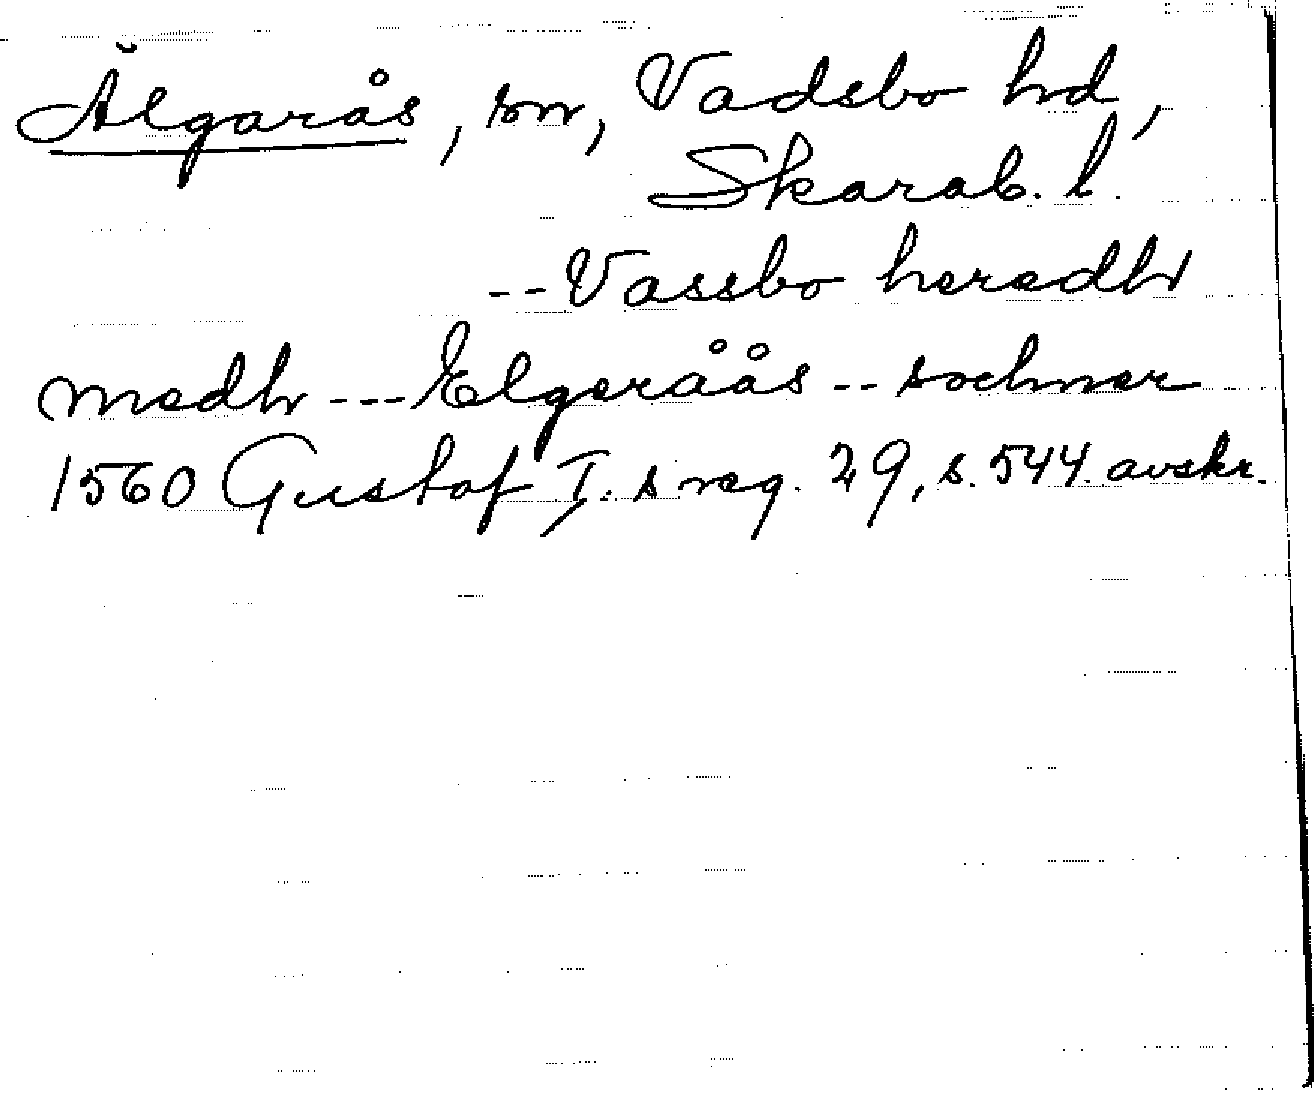 Älgarås, sn, Vadsbo hd,
Skarab. l.
-- Vassbo heredh
medh --- Elgeråås -- sochner
1560 Gustaf I. s reg. 29, s. 544. avskr.